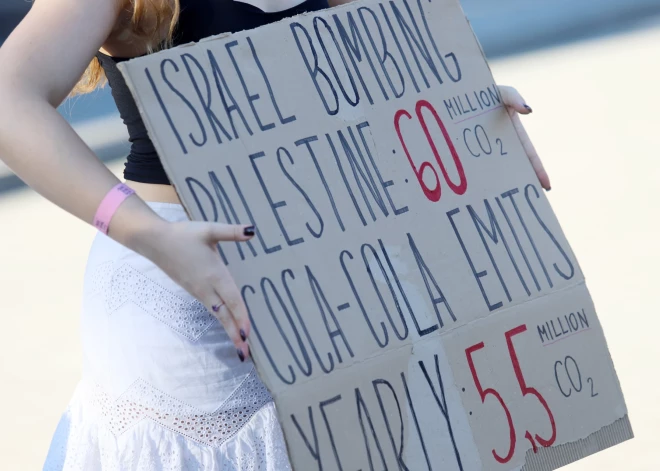 ISRAEL BOMBING
PALESTINE: 60 MILLION CO2
COCA-COLA EMITS
YEARLY: 5,5 MILLION CO2